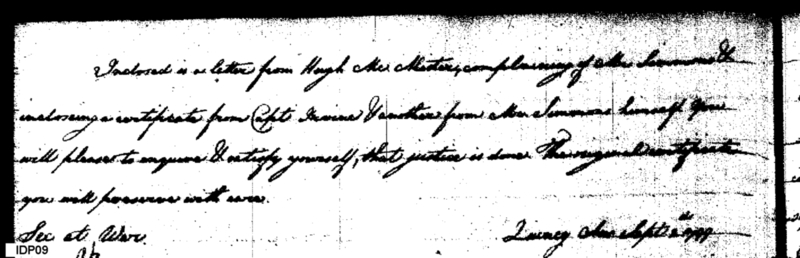 Inclosed is a letter from Hugh Mc Master, complaining of Mr Simmons &
inclosing a certificate from Capt Irvine & another from Mr Simmons himself. You
will please to enquire & satisfy yourself, that justice is done. The original certificate
you will preserve with care.
Sec at War. Quincy Sept 1799
IDP09